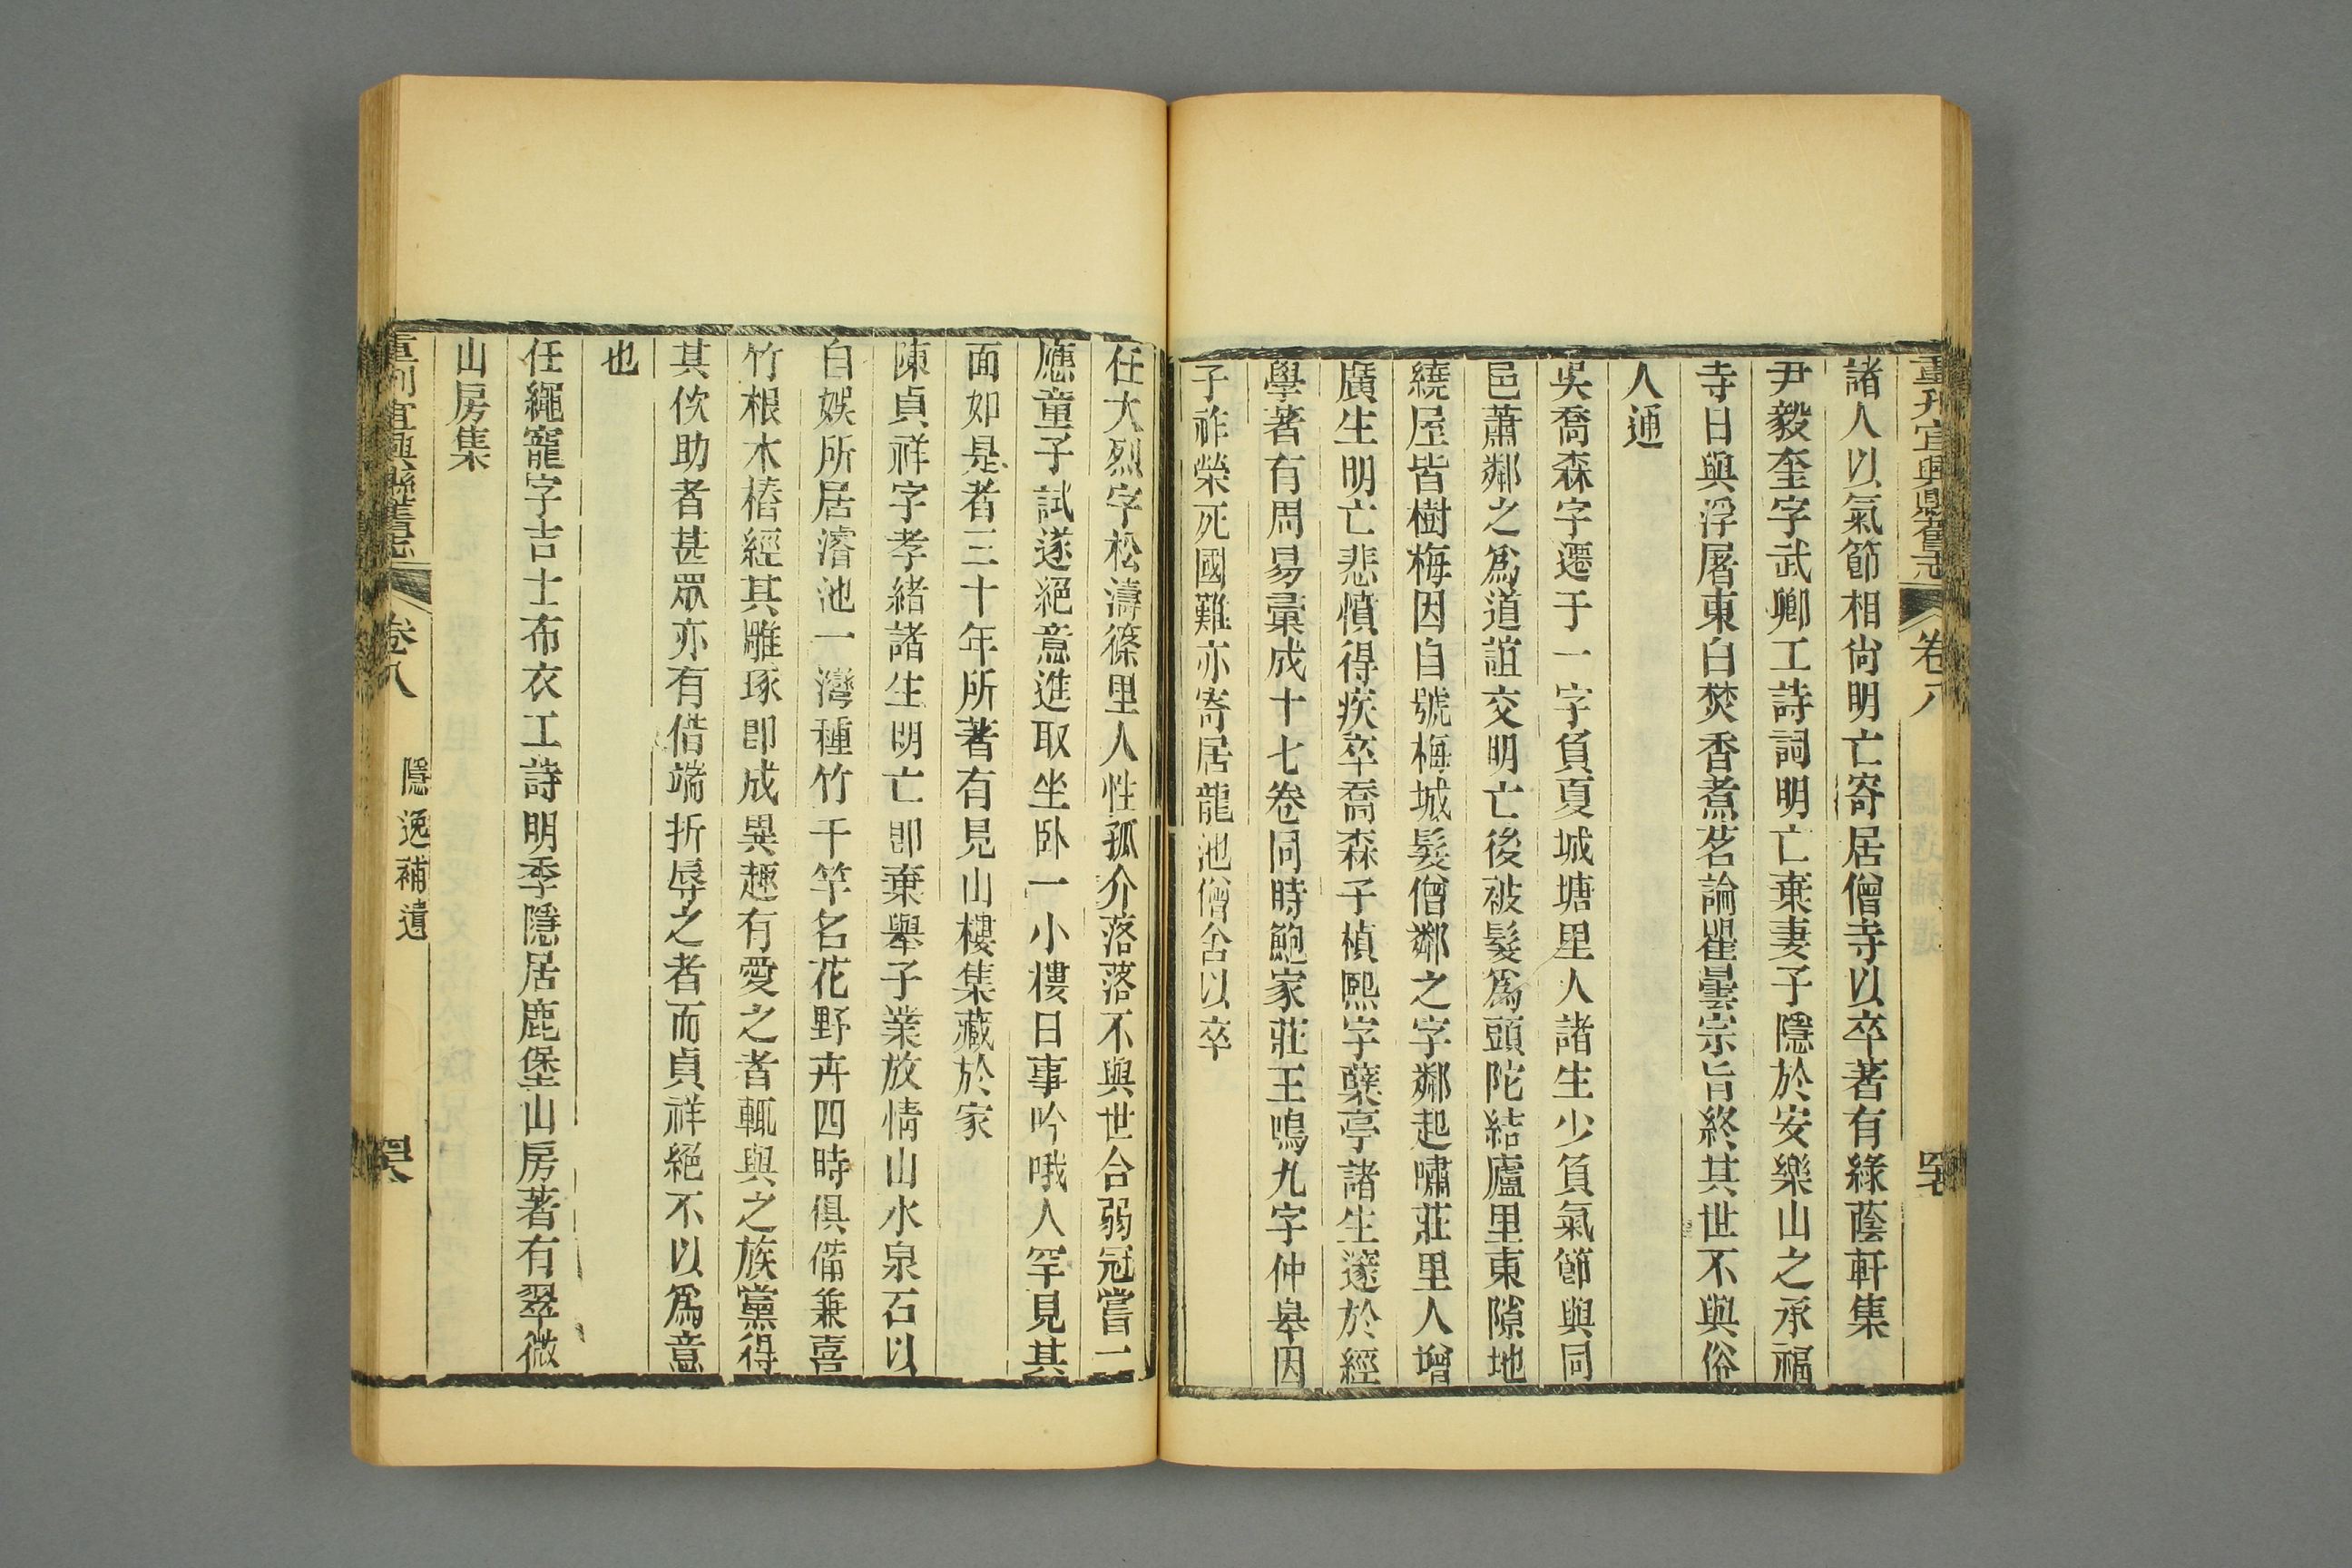 重刋宜興縣舊志
卷八
諸人以氣節相尙明亡寄居僧寺以卒著有綠蔭軒集
尹毅奎字武卿工詩詞明亡棄妻子隱於安樂山之承福
寺日與浮屠東白焚香煮茗論瞿曇宗旨終其世不與俗
人通
吳喬森字遷于一字負夏城塘里人諸生少負氣節與同
邑蕭鄰之爲道誼交明亡後被髮爲頭陀結廬里東隙地
繞屋皆樹梅因自號梅城髮僧鄰之字鄰起嘯莊里人增
廣生明亡悲憤得疾卒喬森子楨熙字蘖亭諸生邃於經
學著有周易彙成十七卷同時鮑家莊王鳴九字仲皋因
子祚榮死國難亦寄居龍池僧舍以卒
任大烈字松濤篠里人性孤介落落不與世合弱冠嘗一
應童子試遂絕意進取坐卧一小樓日事吟哦人罕見其
面如是者三十年所著有見山樓集藏於家
陳貞祥字孝緒諸生明亡卽棄舉子業放情山水泉石以
自娛所居濬池一灣種竹千竿名花野卉四時俱備兼喜
竹根木樁經其雕琢卽成異趣有愛之者輒與之族黨得
其佽助者甚眾亦有借端折辱之者而貞祥絕不以爲意
也
任繩寵字吉士布衣工詩明季隱居鹿堡山房著有翠微
山房集
重刋宜興縣舊志
卷八
隱逸補遺